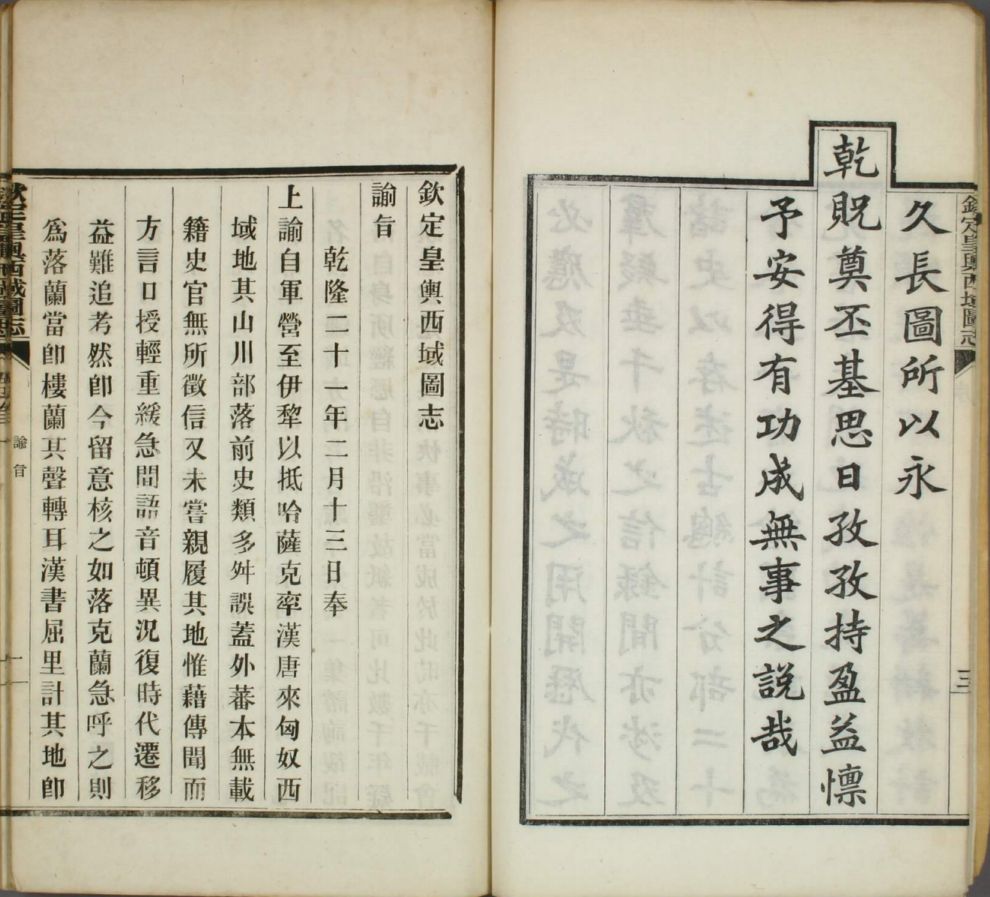 欽定皇輿西域圖志
久長圖所以永
乾貺奠丕基思日孜孜持盈益懍
予安得有功成無事之說哉
三
欽定皇輿西域圖志
諭旨
乾隆二十一年二月十三日奉
上諭自軍營至伊犂以抵哈薩克率漢唐來匈奴西
域地其山川部落前史類多舛誤蓋外蕃本無載
籍史官無所徵信又未嘗親履其地惟藉傳聞而
方言口授輕重緩急間語音頓異況復時代遷移
益難追考然卽今留意核之如落克蘭急呼之則
爲落蘭當卽樓蘭其聲轉耳漢書屈里計其地卽
欽定皇輿西域圖志
諭旨
一